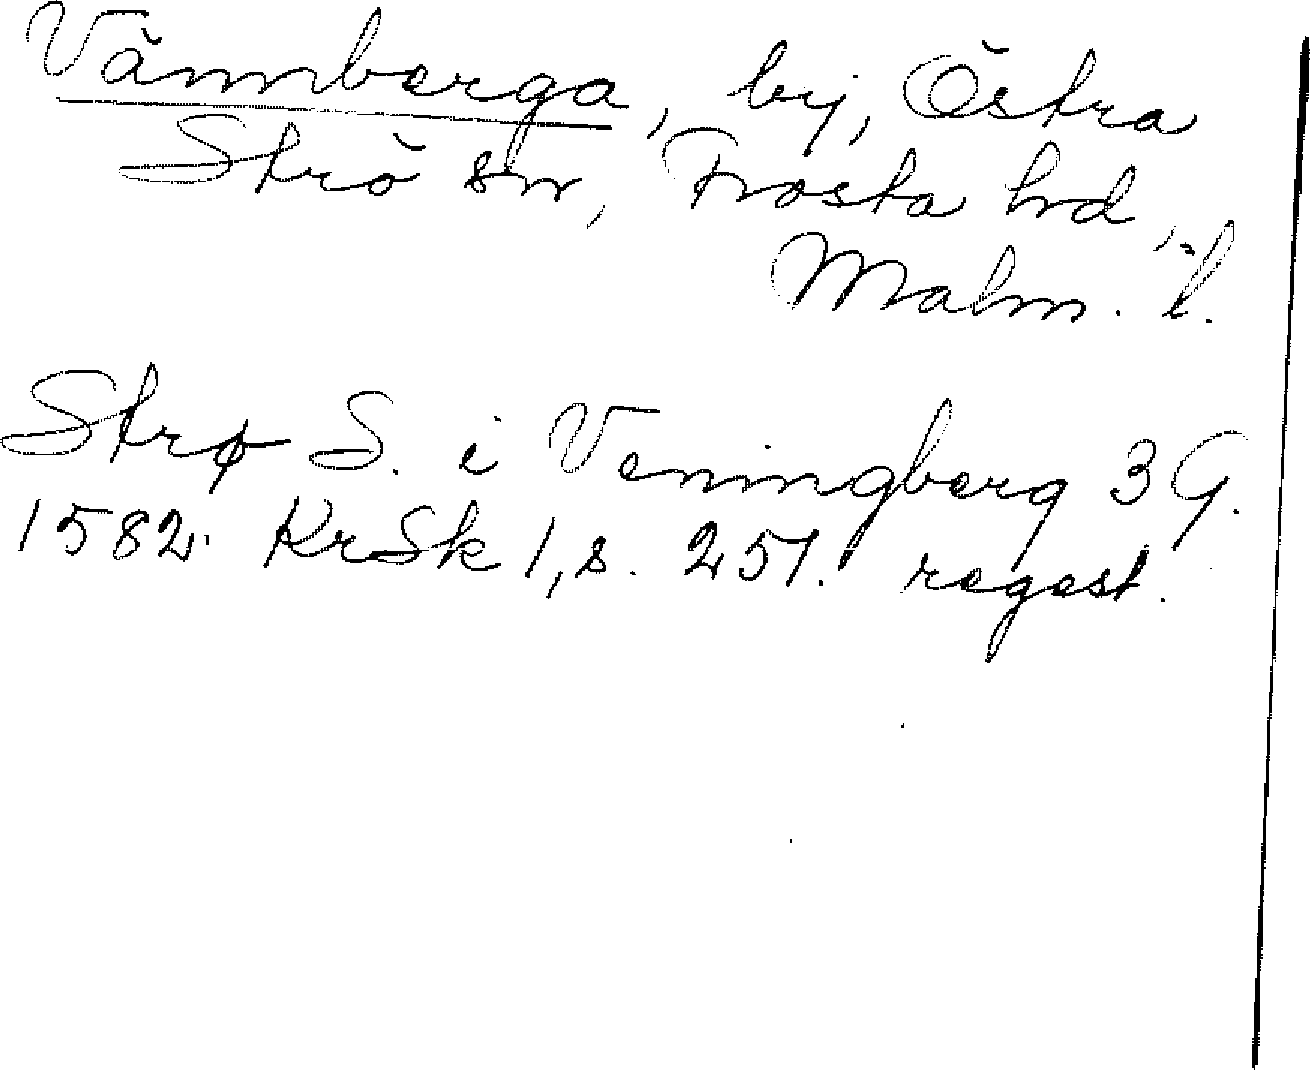 Vännberga, by, Östra
Strö sn, Frosta hd,
Malm. l.
Strø S. i Veningberg 3 G.
1582. KrSk 1, s. 251. regest.